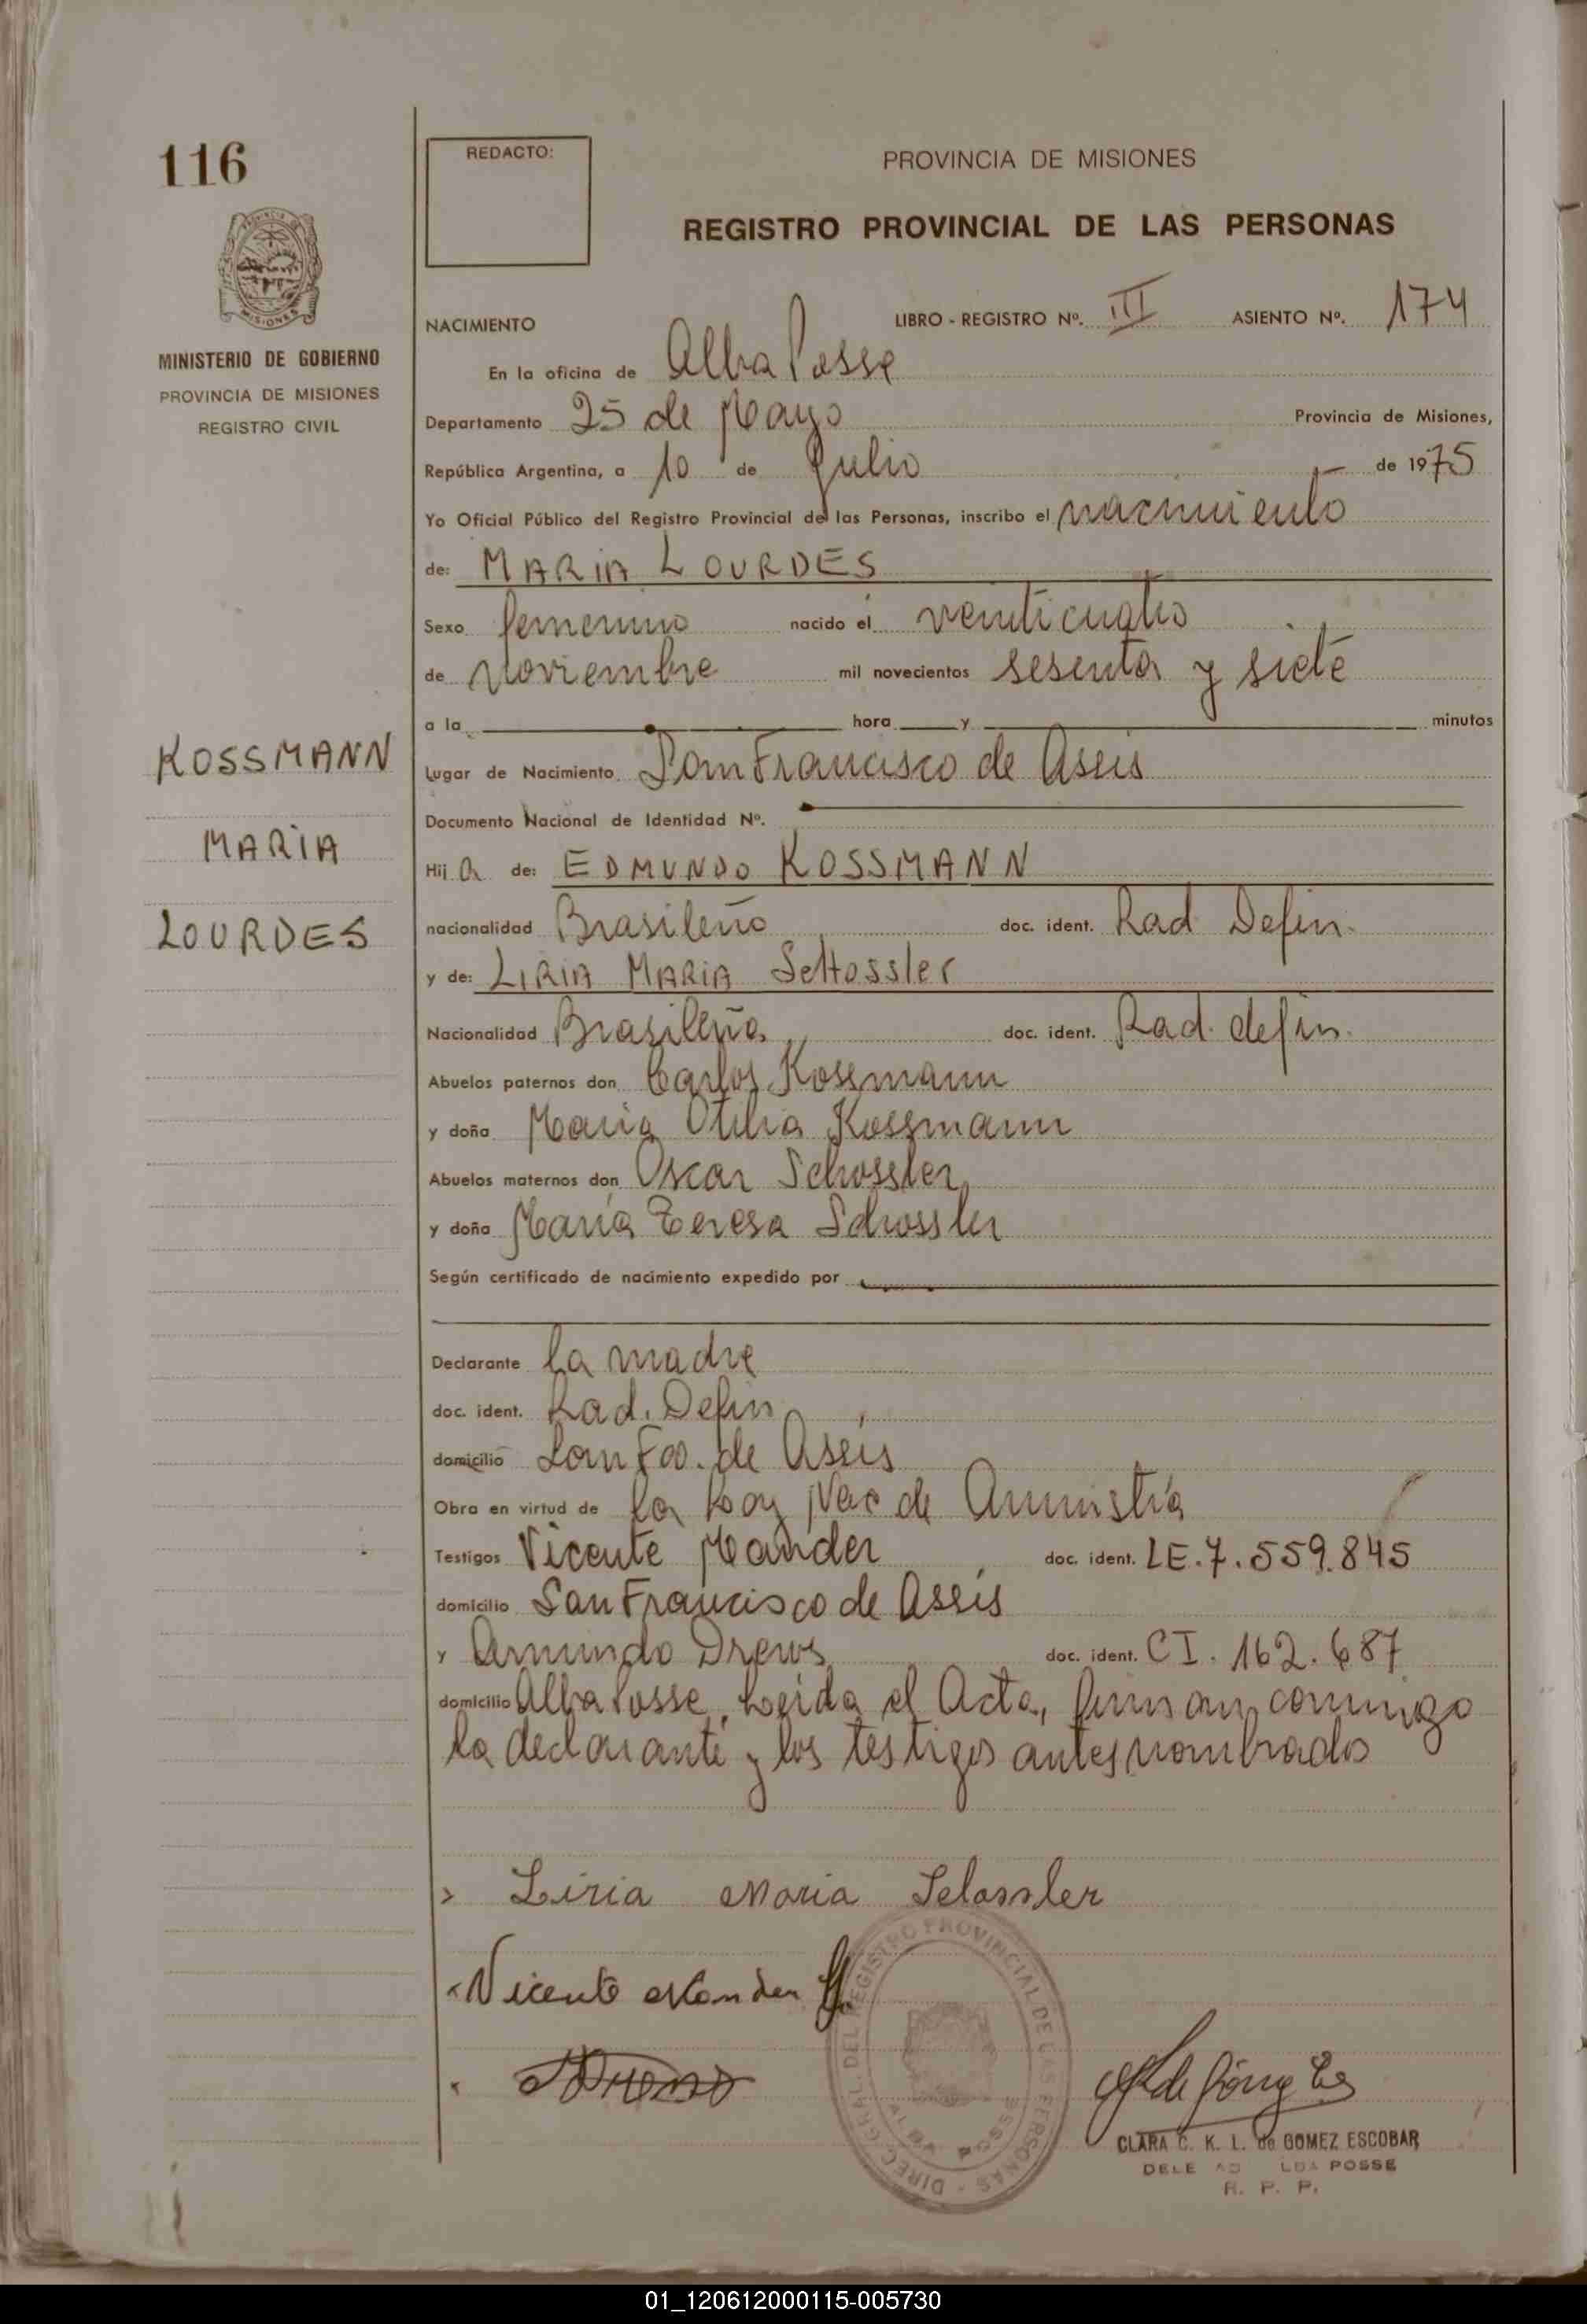 116
REDACTO:
PROVINCIA DE MISIONES
REGISTRO PROVINCIAL DE LAS PERSONAS
MISIONES
MINISTERIO DE GOBIERNO
PROVINCIA DE MISIONES
REGISTRO CIVIL
NACIMIENTO LIBRO - REGISTRO Nº. III ASIENTO Nº. 174
En la oficina de Alba Posse
Departamento 25 de Mayo Provincia de Misiones,
República Argentina, a 10 de Julio de 1975
Yo Oficial Público del Registro Provincial de las Personas, inscribo el nacimiento
de: MARIA LOURDES
Sexo femenino nacido el veinticuatro
de noviembre mil novecientos sesenta y siete
a la hora y minutos
KOSSMANN
MARIA
LOURDES
Lugar de Nacimiento San Francisco de Aseis
Documento Nacional de Identidad Nº.
Hija de: EDMUNDO KOSSMANN
nacionalidad Brasileño doc. ident. Rad Defin.
y de: LIRIA MARIA SCHossler
Nacionalidad Brasileña doc. ident. Rad. defin.
Abuelos paternos don Carlos Kossmann
y doña Maria Otilia Kossmann
Abuelos maternos don Oscar Schossler
y doña María Teresa Schossler
Según certificado de nacimiento expedido por
Declarante La madre
doc. ident. Rad. Defin
domicilio San Fco. de Aseís
Obra en virtud de la Ley Nac de Amnistía
Testigos Vicente Mander doc. ident. LE. 7.559.845
domicilio San Francisco de Assís
y Armindo Drews doc. ident. CI. 162.687
domicilio Alba Posse, Leída el Acta, firman conmigo
la declarante y los testigos antes nombrados
Liria Maria Selossler
Vicente Mander
DIREC. GRAL. DEL REGISTRO PROVINCIAL DE LAS PERSONAS - ALBA POSSE
CLARA C. K. L. de GOMEZ ESCOBAR
POSSE
R. P. P.
01_120612000115-005730